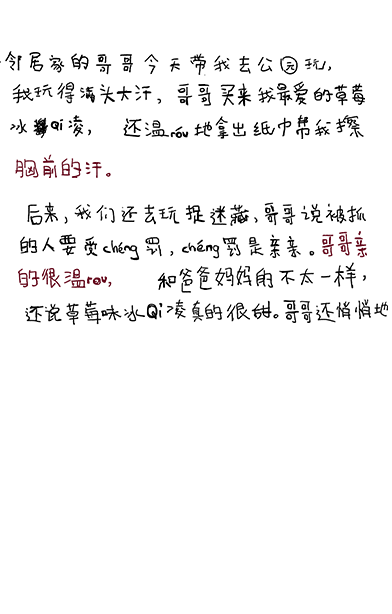 邻居家的哥哥今天带我去公园玩,
我玩得满头大汗,哥哥买来我最爱的草莓
冰Qi凌,还温róu地拿出纸巾帮我擦
胸前的汗。
后来,我们还去玩捉迷藏,哥哥说被抓
的人要受chéng罚,chéng罚是亲亲。哥哥亲
的很温rou,和爸爸妈妈的不太一样,
还说草莓味冰Qi凌真的很甜。哥哥还悄悄地